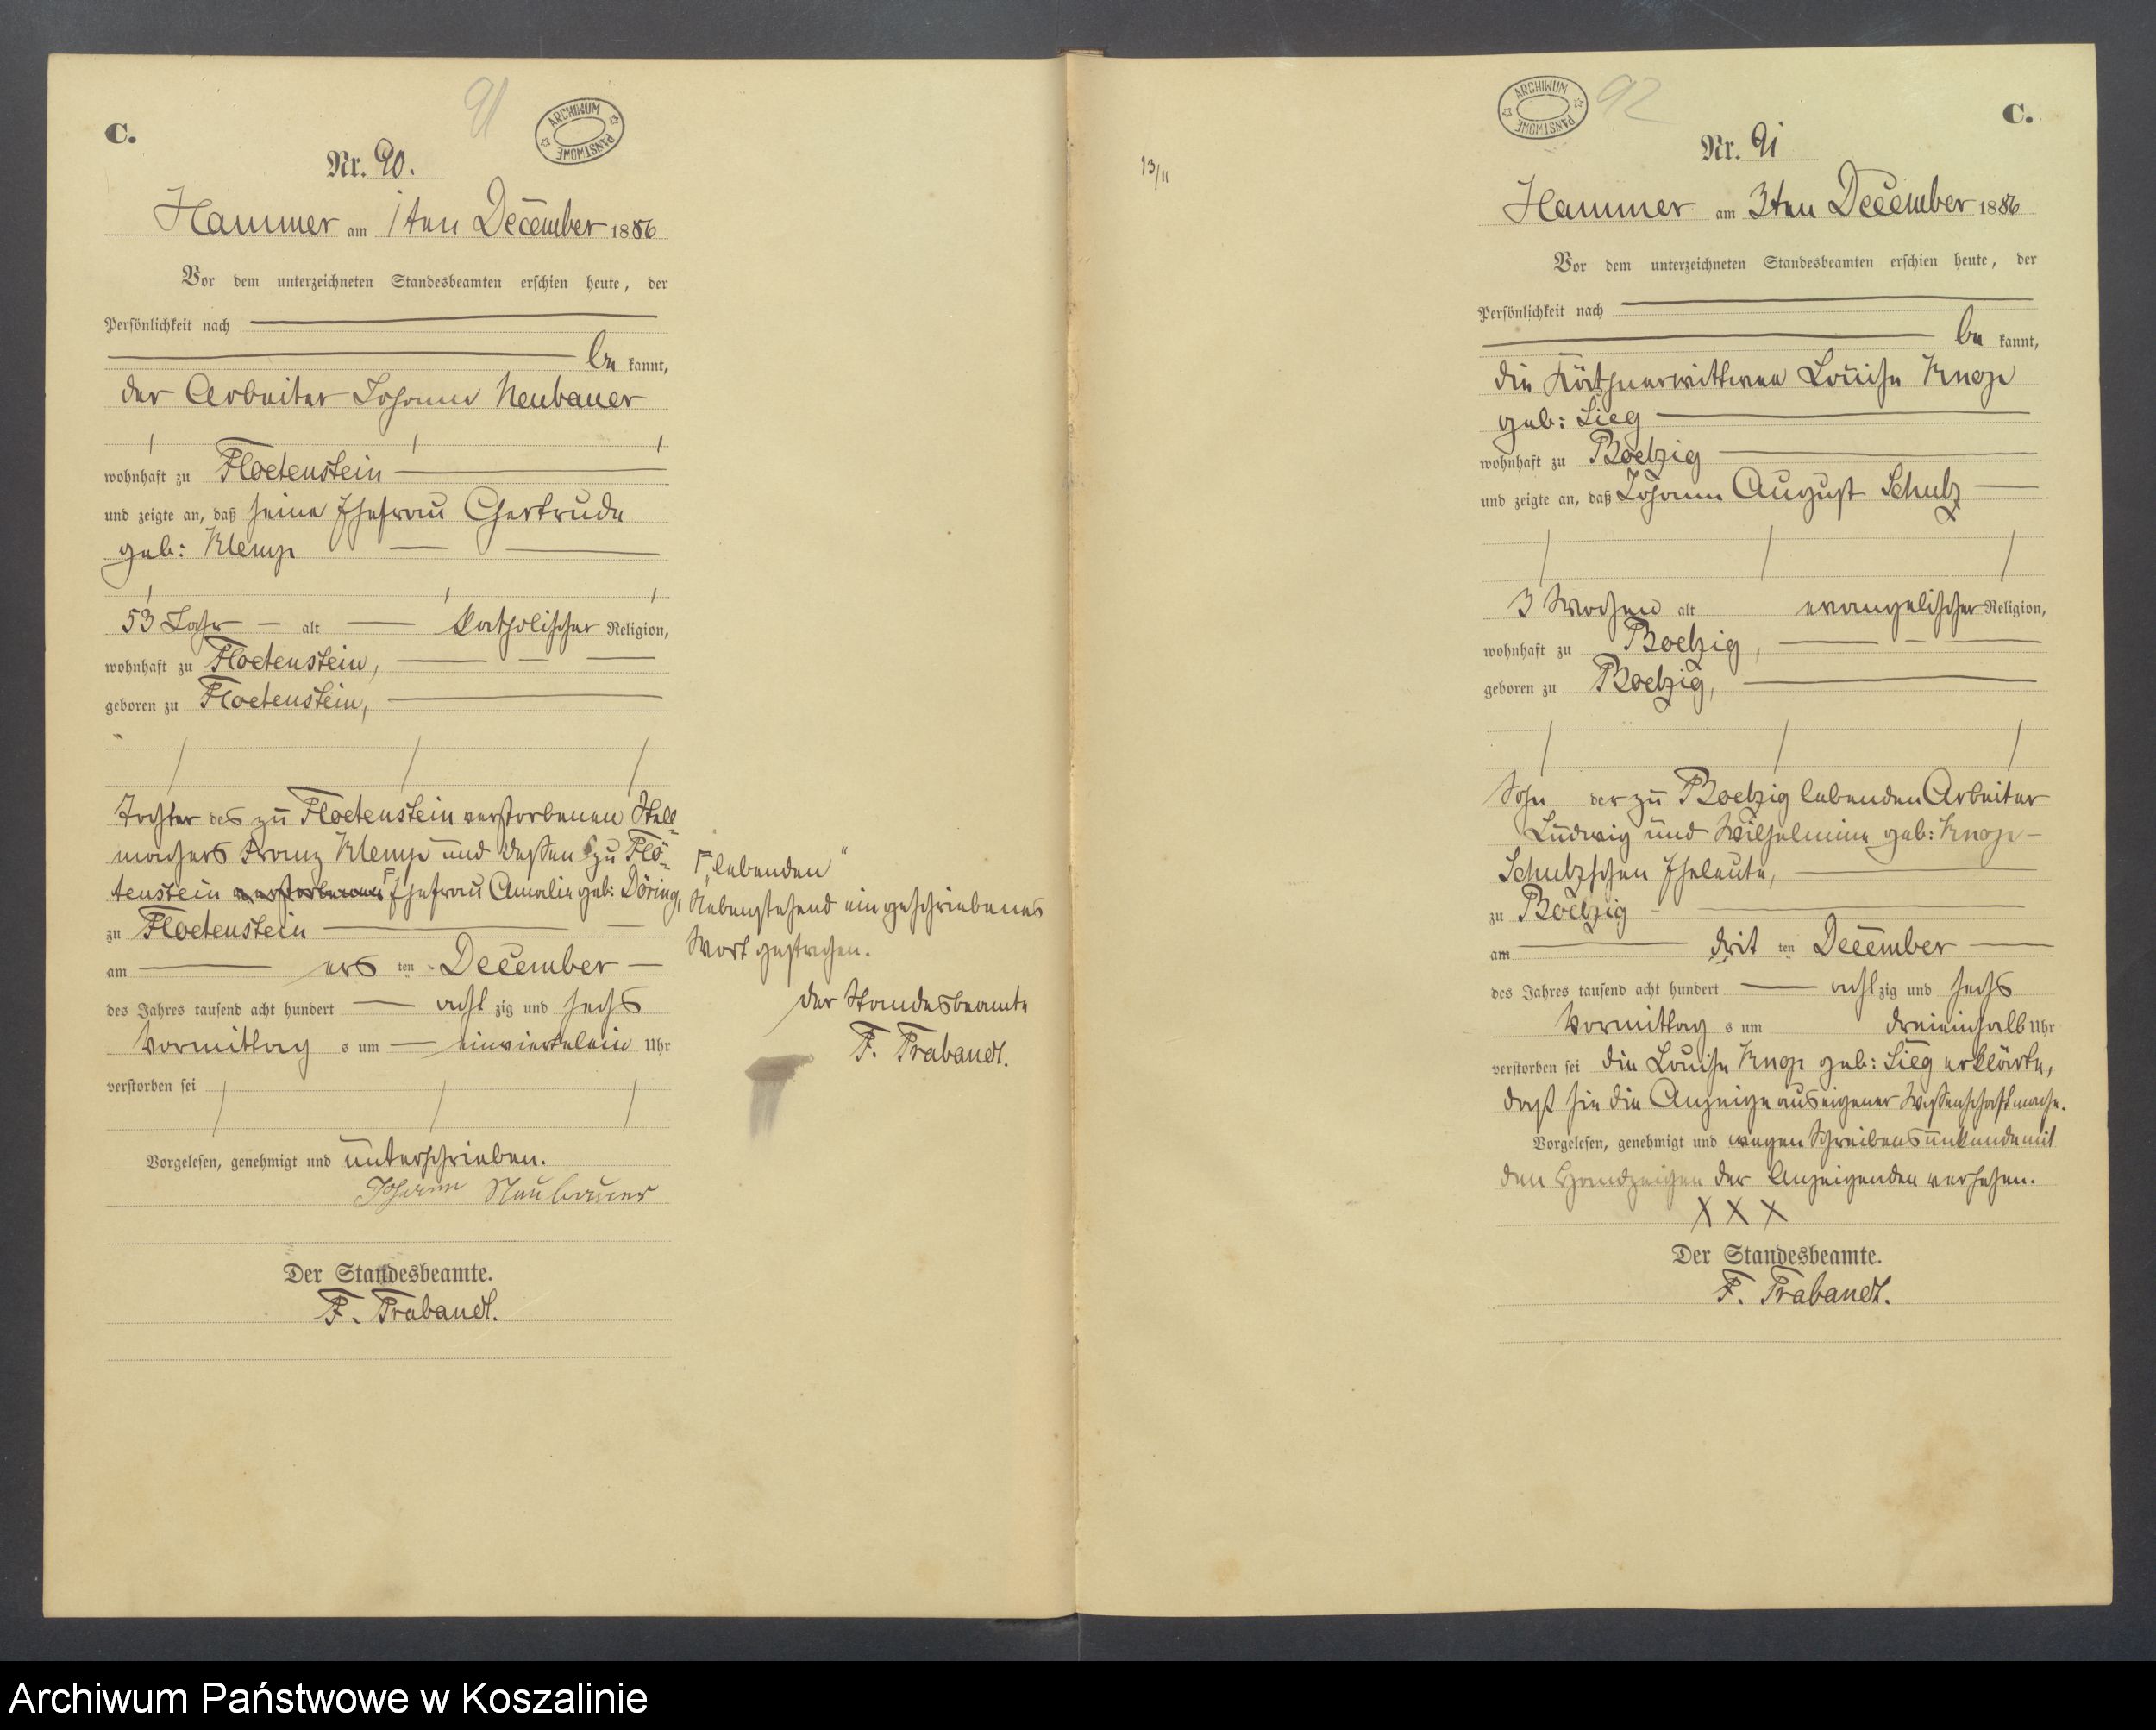 91
C.
ARCHIWUM PAŃSTWOWE
Nr. 90.
Hammer am 1ten December 1886
Vor dem unterzeichneten Standesbeamten erschien heute, der
Persönlichkeit nach
be kannt,
der Arbeiter Johann Neubauer
wohnhaft zu Floetenstein
und zeigte an, daß seine Ehefrau Gertrude
geb: Klemp
53 Jahr alt katholischer Religion,
wohnhaft zu Floetenstein,
geboren zu Floetenstein,
Tochter des zu Floetenstein verstorbenen Stell-
machers Franz Klemp und dessen zu Flö-
tenstein verstorbenen Ehefrau Amalie geb: Döring,
zu Floetenstein
am ers ten December
des Jahres tausend acht hundert acht zig und sechs
Vormittag s um einviertelein Uhr
verstorben sei
Vorgelesen, genehmigt und unterschrieben.
Johann Neubauer
Der Standesbeamte.
F. Trabandt.
„lebenden“
Nebenstehend eingeschriebenes
Wort gestrichen.
Der Standesbeamte
F. Trabandt.
13/11
ARCHIWUM PAŃSTWOWE
92
C.
Nr. 91
Hammer am 3ten December 1886
Vor dem unterzeichneten Standesbeamten erschien heute, der
Persönlichkeit nach
be kannt,
die Käthnerwittwee Louise Knop
geb: Lieg
wohnhaft zu Boelzig
und zeigte an, daß Johann August Schulz
3 Wochen alt evangelischer Religion,
wohnhaft zu Boelzig,
geboren zu Boelzig,
Sohn der zu Boelzig lebenden Arbeiter
Ludwig und Wilhelmine geb: Knop-
Schulzschen Eheleute,
zu Boelzig
am drit ten December
des Jahres tausend acht hundert acht zig und sechs
Vormittag s um dreieinhalb Uhr
verstorben sei die Louise Knop geb: Lieg erklärte,
daß sie die Anzeige aus eigener Wissenschaft mache.
Vorgelesen, genehmigt und wegen Schreibensunkunde mit
den Handzeichen der Anzeigenden versehen.
X X X
Der Standesbeamte.
F. Trabandt.
Archiwum Państwowe w Koszalinie